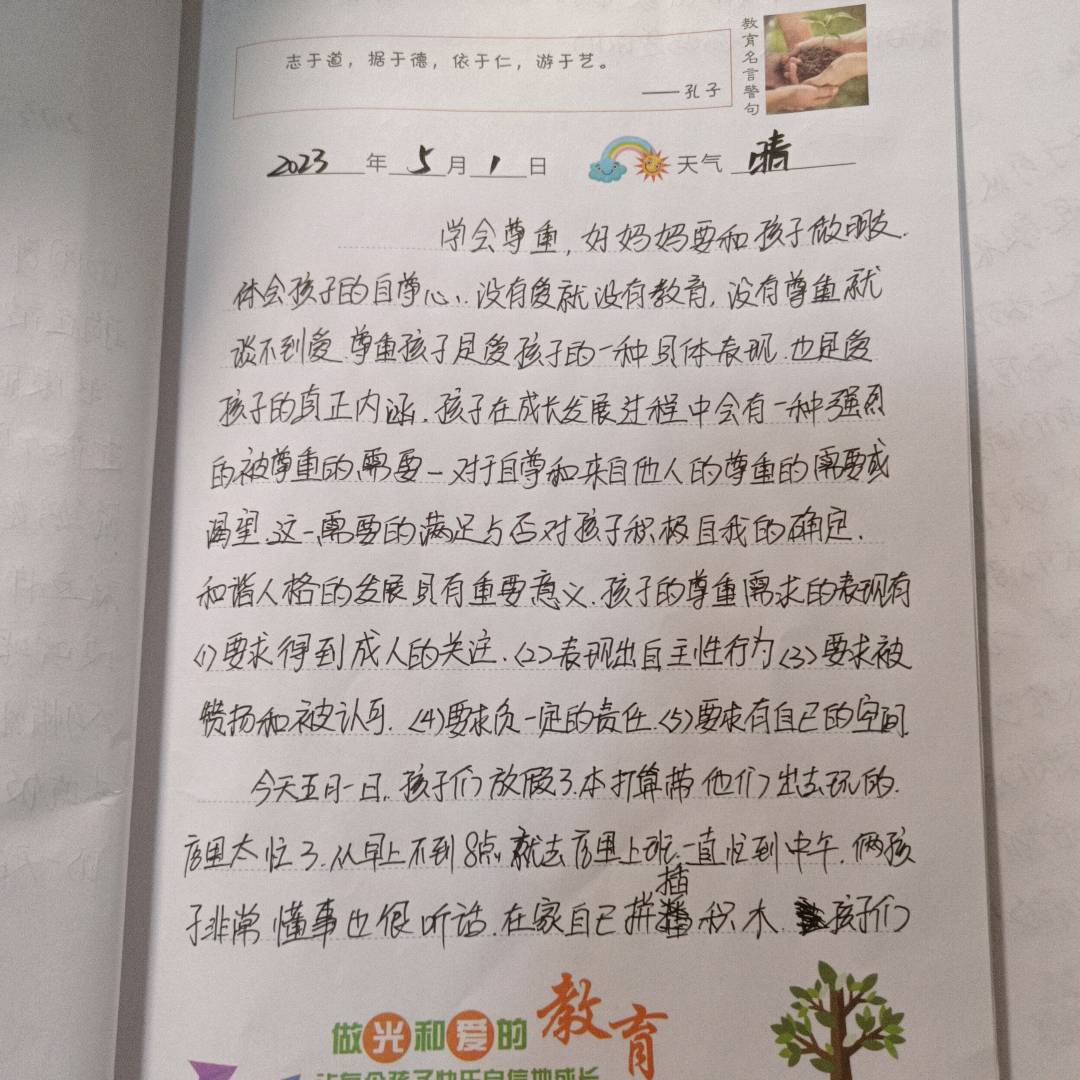 志于道，据于德，依于仁，游于艺。
——孔子
教育名言警句
2023年5月1日 天气 晴
学会尊重，好妈妈要和孩子做朋友.
体会孩子的自尊心、没有爱就没有教育，没有尊重就
谈不到爱.尊重孩子是爱孩子的一种具体表现.也是爱
孩子的真正内涵.孩子在成长发展过程中会有一种强烈
的被尊重的需要一对于自尊和来自他人的尊重的需要或
渴望.这一需要的满足与否对孩子积极自我的确定.
和谐人格的发展具有重要意义.孩子的尊重需求的表现有
<1>要求得到成人的关注.<2>表现出自主性行为<3>要求被
赞扬和被认可.<4>要求负一定的责任.<5>要求有自己的空间.
今天五月一日.孩子们放假了.本打算带他们出去玩的.
店里太忙了.从早上不到8点.就去店里上班.一直忙到中午.俩孩
子非常懂事也很听话.在家自己拼插积木.孩子们
做光和爱的教育
让每个孩子快乐自信地成长